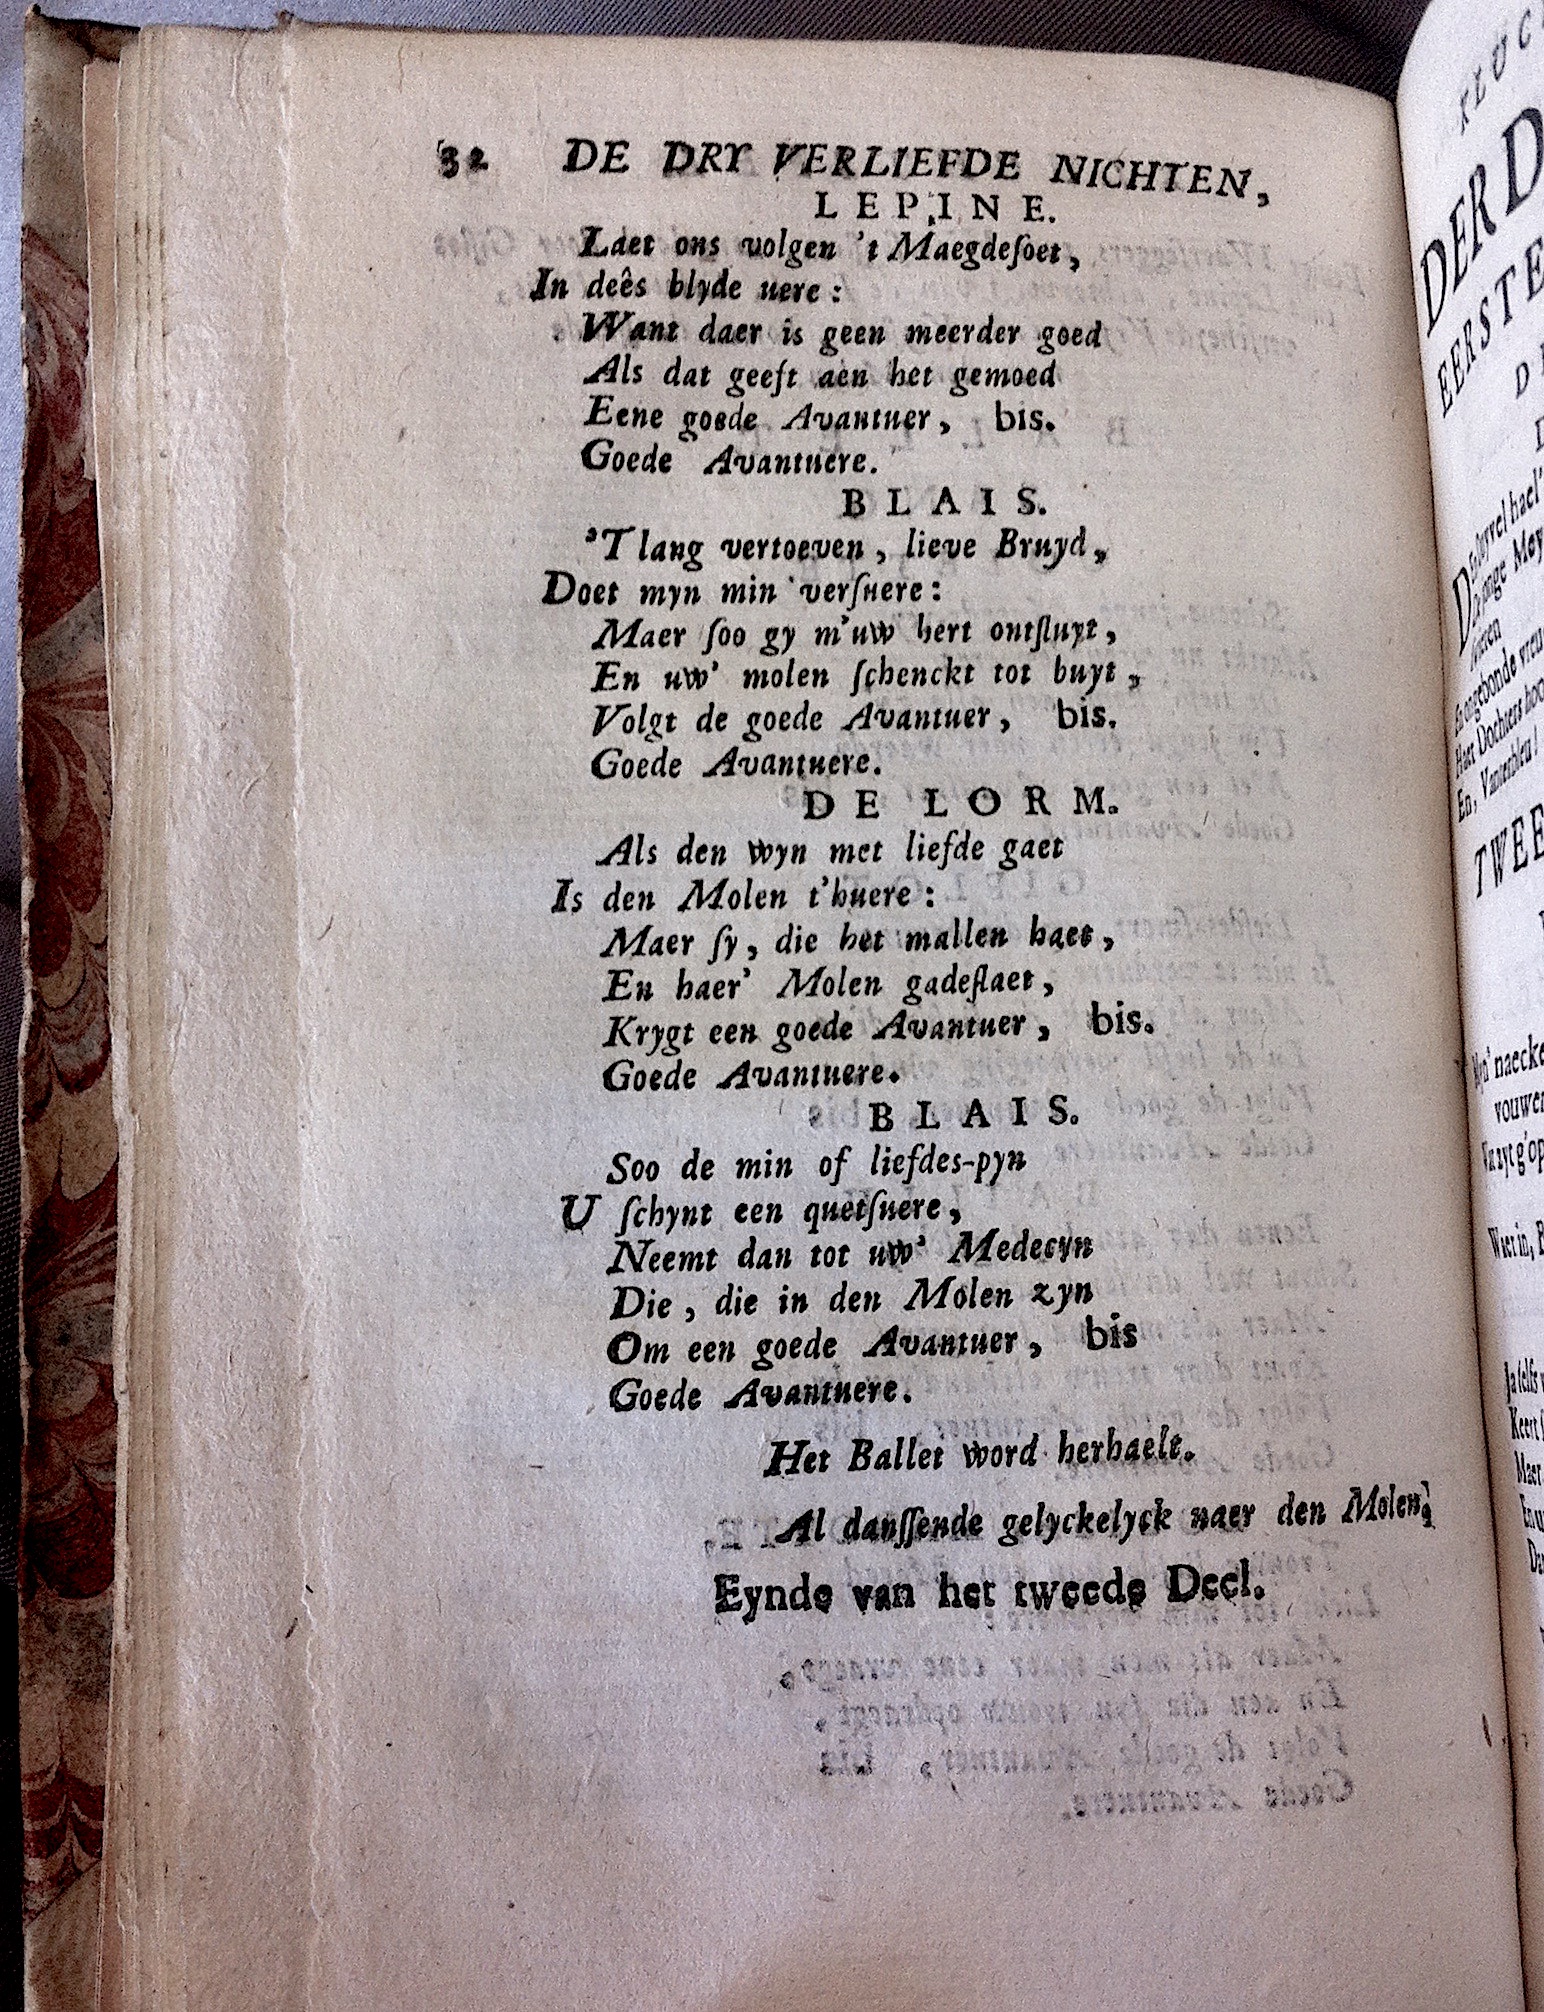 32 DE DRY VERLIEFDE NICHTEN,
LEPINE.
Laet ons volgen 't Maegdeſoet,
In deês blyde uere:
Want daer is geen meerder goed
Als dat geeft aen het gemoed
Eene goede Avantuer, bis.
Goede Avantuere.
BLAIS.
'T lang vertoeven, lieve Bruyd,
Doet myn min verſuere:
Maer ſoo gy m'uw hert ontſluyt,
En uw' molen ſchenckt tot buyt,
Volgt de goede Avantuer, bis.
Goede Avantuere.
DE LORM.
Als den wyn met liefde gaet
Is den Molen t'huere:
Maer ſy, die het mallen haet,
En haer' Molen gadeſlaet,
Krygt een goede Avantuer, bis.
Goede Avantuere.
BLAIS.
Soo de min of liefdes-pyn
U ſchynt een quetſuere,
Neemt dan tot uw' Medecyn
Die, die in den Molen zyn
Om een goede Avantuer, bis
Goede Avantuere.
Het Ballet word herhaelt.
Al danſſende gelyckelyck naer den Molen.
Eynde van het tweede Deel.
DER D
EERSTE
Duyvel hael'
jonge Mey
En ongebonde vreu
Haer Dochters
En, Vanterbleu!
TWEE
Myn' naecke
vouwen
Weer in,
Ja ſelfs
Keert
Maer